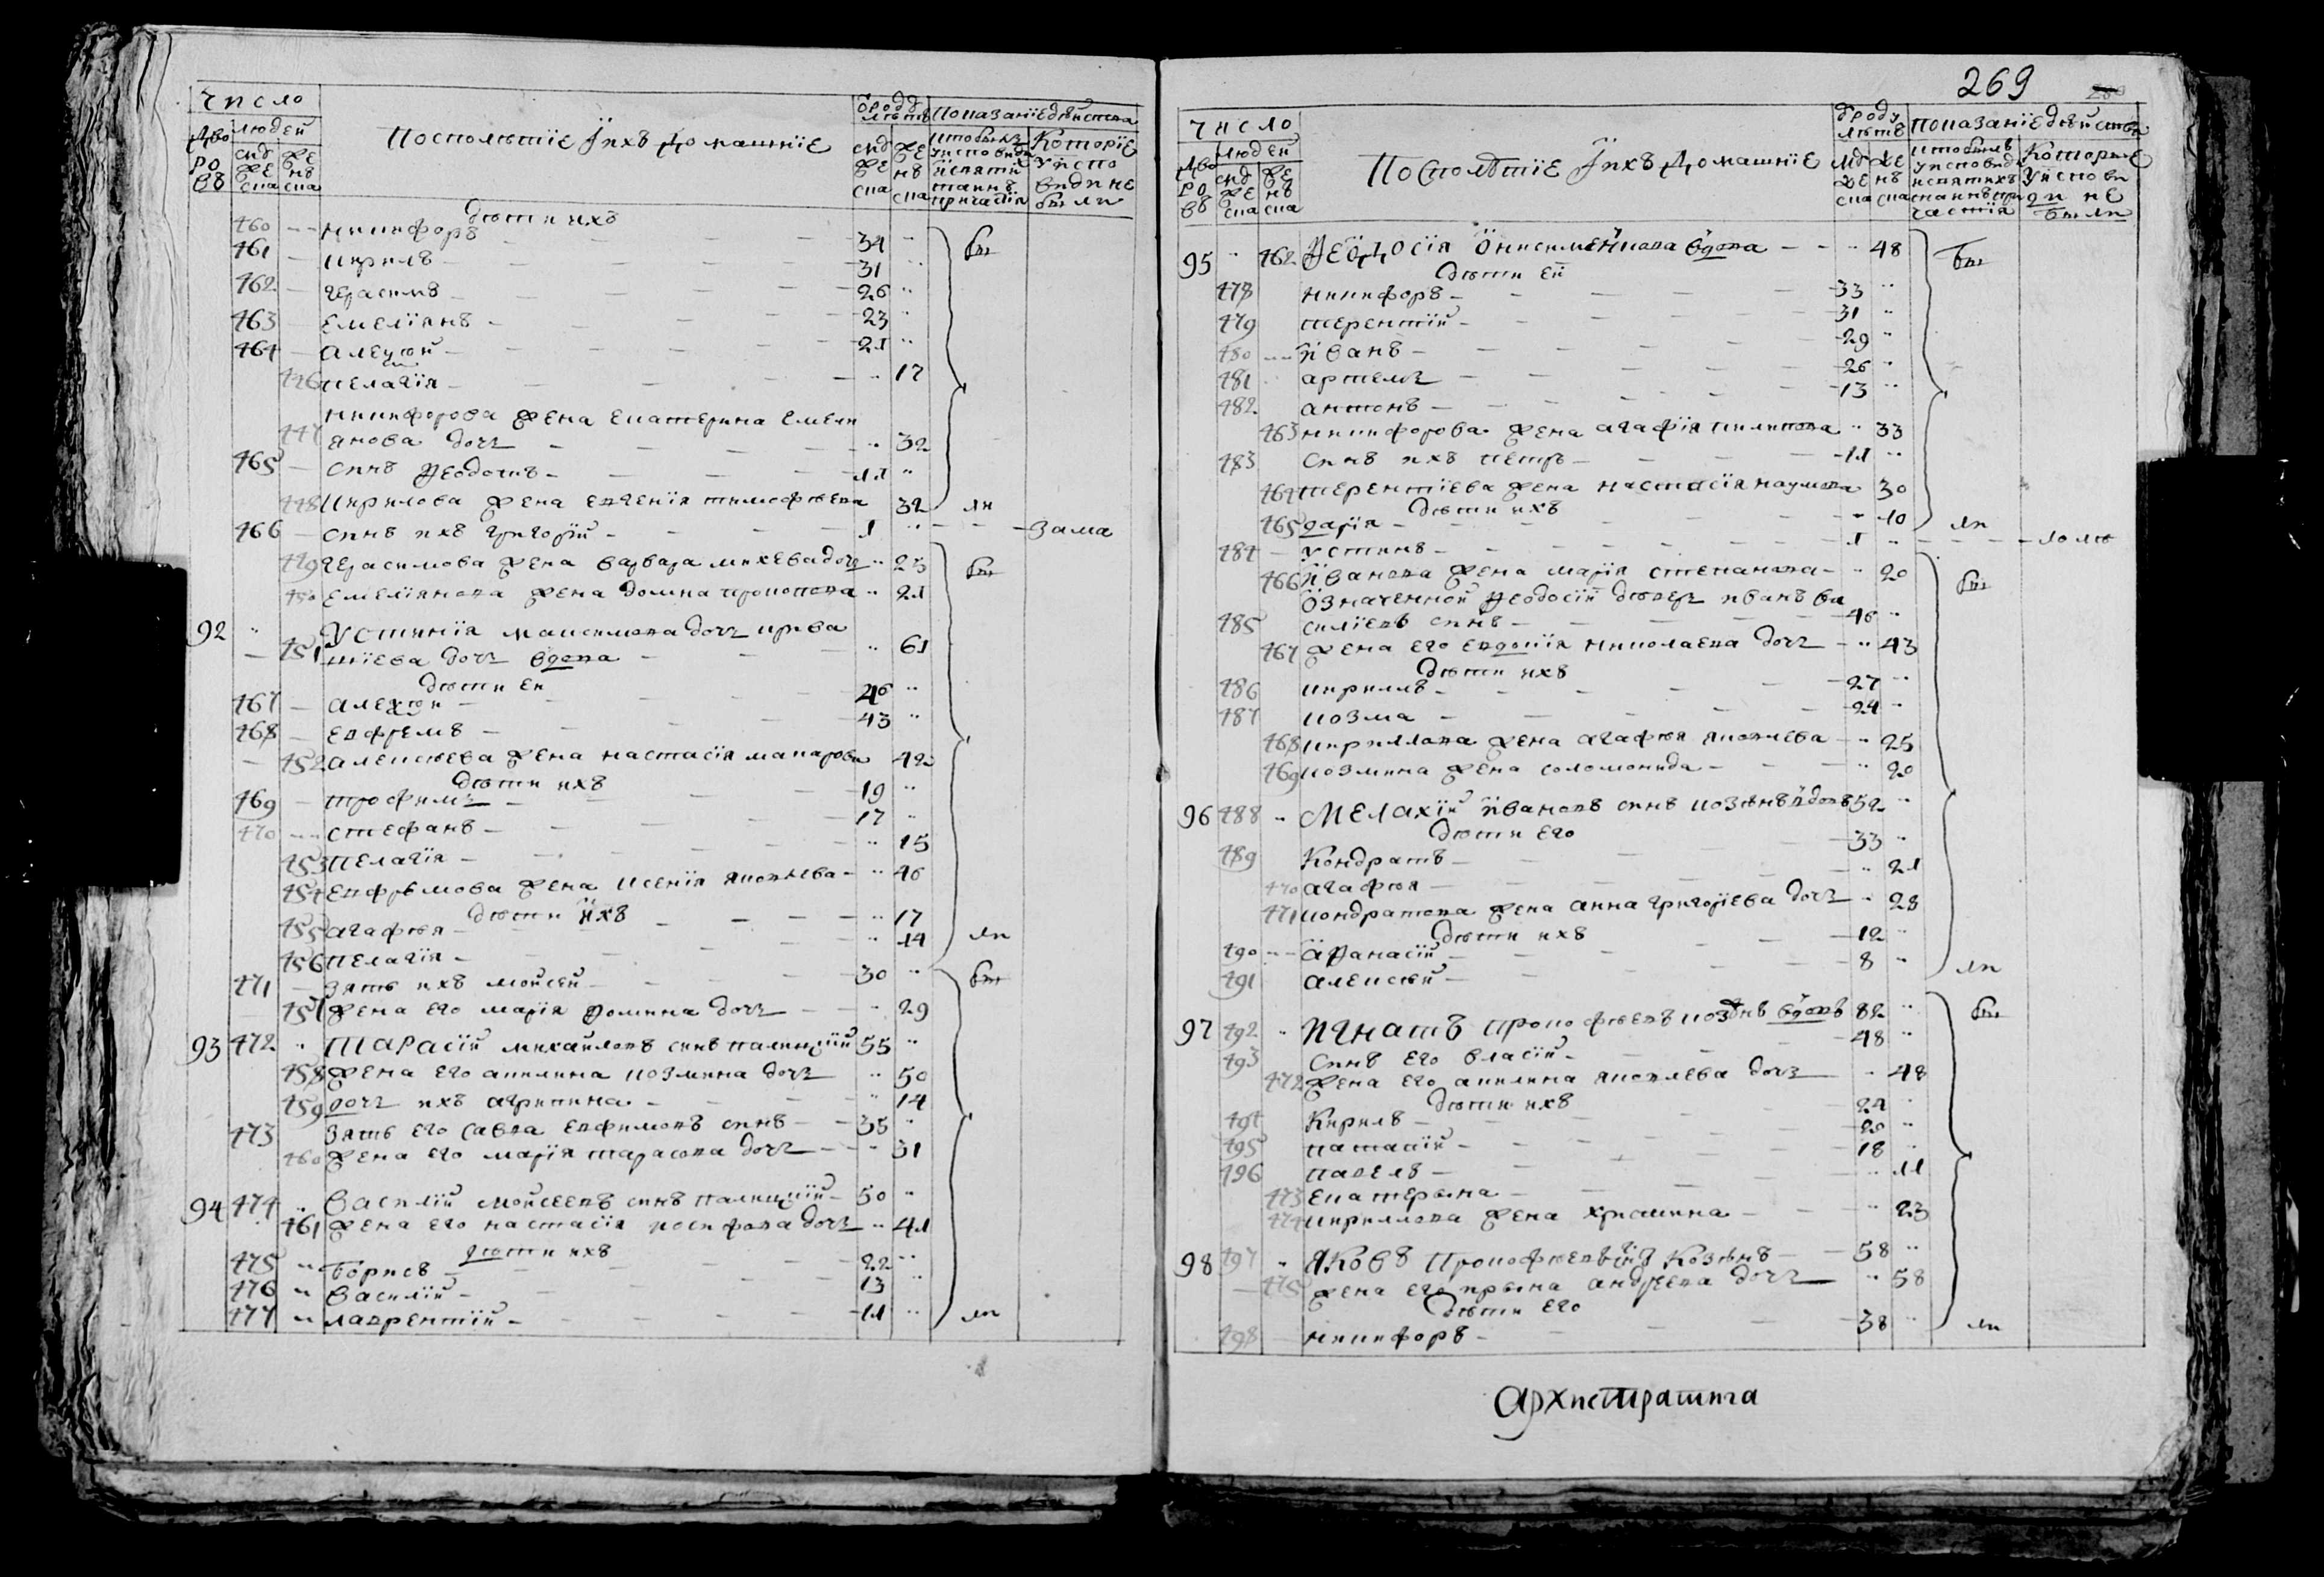 Число
Посполытіе Ихъ домашніе
людей
Показаніе дѣйства
Которіе
у испо
види не
были
дѣти ихъ
460 Никифоръ 34
461 Кирилъ 31
462 Герасимъ 26
463 Емеліянъ 23
464 Алеѯѣй 21
446 Пелагія 17
Никифорова жена Екатерина Емели
447 янова дочь 32
465 Синъ Ѳеодотъ 11
448 Кирилова жена Евгенія Тимофѣева 32
466 Синъ ихъ Григорій 1 зама
449 Герасимова жена Варвара Михева дочь 25
450 Емеліянова жена Домна Прокопова 21
92 Устинія Максимова дочь Крива
451 шіева дочь вдова 61
дѣти еи
467 Алеѯѣй 46
468 Евфремъ 43
452 Алексѣева жена Настасія Макарова 42
дѣти ихъ
469 Трофимъ 19
470 Стефанъ 17
453 Пелагія 15
454 Евфрѣмова жена Ксенія Яковлева 46
дѣти ихъ
455 Агафѣя 17
456 Пелагія 14
471 Зять ихъ Мойсей 30
457 жена его Марія Ѳомина дочь 29
93 472 Тарасій Михайловъ синъ Палицкій 55
458 жена его Акилина Козмина дочь 50
459 дочь ихъ Агрипина 14
473 Зять его Савва Евфимовъ синъ 35
460 жена его Марія Тарасова дочь 31
94 474 Василій Мойсеевъ синъ Палицкій 50
461 жена его Настасія Иосифова дочь 41
дѣти ихъ
475 Борисъ 22
476 Василій 13
477 Лаврентій 11
269
Число
Посполѣтіе Ихъ домашніе
людей
Показаніе дѣйства
Которые
у испови
ди не
были
95 462 Ѳеодосія Онисименкова вдова 48
дѣти ей
478 Никифоръ 33
479 Терентій 31
480 Иванъ 29
481 Артемъ 26
482 Антонъ 13
463 Никифорова жена Агафія Пилипова 33
483 Синъ ихъ Петръ 11
464 Терентіева жена Настасія Наумова 30
дѣти ихъ
465 Дарія 10
484 Устинъ 1 лолѣ
466 Иванова жена Марія Степанова 20
Означенной Ѳеодосій дѣверъ Иванъ Ва
485 силіевъ синъ 46
467 жена его Евдокія Николаева дочь 43
дѣти ихъ
486 Кирилъ 27
487 Козма 24
468 Кириллова жена Агафѣя Яковлева 25
469 Козмина жена Соломонида 20
96 488 Мелахій Ивановъ синъ Козѣнъ вдовъ 52
дѣти его
489 Кондратъ 33
470 Агафѣя 21
471 Кондратова жена Анна Григоріева дочь 28
дѣти ихъ
490 Аѳанасій 12
491 Алексѣй 8
97 492 Игнатъ Прокофѣевъ Козѣнъ вдовъ 82
493 Синъ его Власій 48
472 жена его Акилина Яковлева дочь 48
дѣти ихъ
494 Кирилъ 24
495 Патапій 20
496 Павелъ 18
473 Екатерына 11
474 Кириллова жена Христина 23
98 497 Яковъ Прокофѣевъ синъ Козѣнъ 58
475 жена его Ирына Андрѣева дочь 58
дѣти его
498 Никифоръ 38
Бы
ли
Архистратига